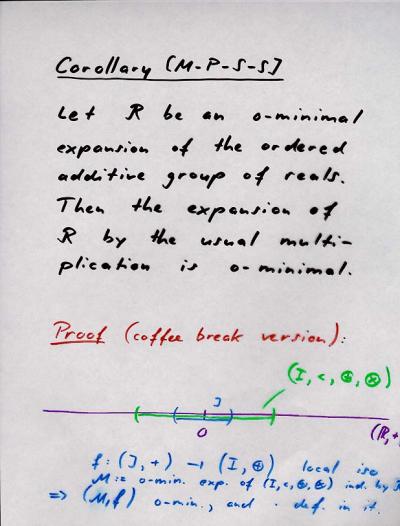 Corollary [M-P-S-S]
Let R be an o-minimal
expansion of the ordered
additive group of reals.
Then the expansion of
R by the usual multi-
plication is o-minimal.
Proof (coffee break version):
(I, <, ⊕, ⊗)
J
0
(R, +
f: (J, +) → (I, ⊕) local iso
M := o-min. exp. of (I, <, ⊕, ⊗) ind. by R
⇒ (M, f) o-min., and · def. in it.